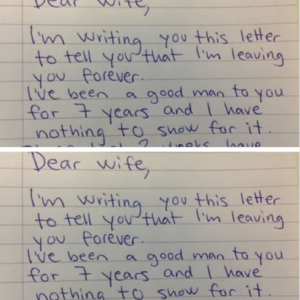 Dear wife,
I'm writing you this letter
to tell you that I'm leaving
you forever.
I've been a good man to you
for 7 years and I have
nothing to show for it.
2 weeks have
Dear wife,
I'm writing you this letter
to tell you that I'm leaving
you forever.
I've been a good man to you
for 7 years and I have
nothing to show for it.